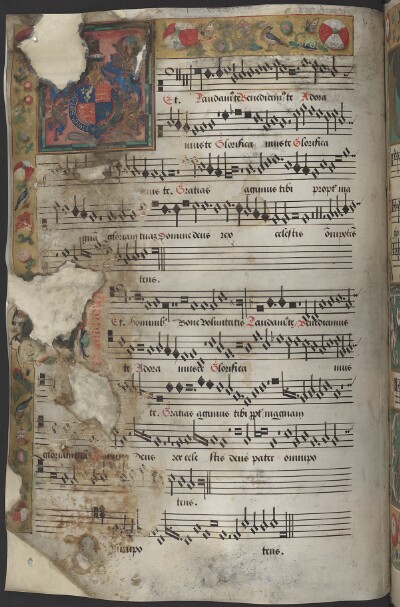 Et. Laudam9 te Benedicim9 te Adora
mus te Glorifica mus te Glorifica
mus te. Gratias agimus tibi propt' ma
gnā gloriam tuaz Domine deus rex celestis
tens.
Et. hominib9 Bone voluntatis Laudam9 te Benedicimus
te Adora mus te Glorifica mus
te. Gratias agimus tibi ppt' magnam
gloriam deus rex cele stis deus pater omnipo
tens.
tens.